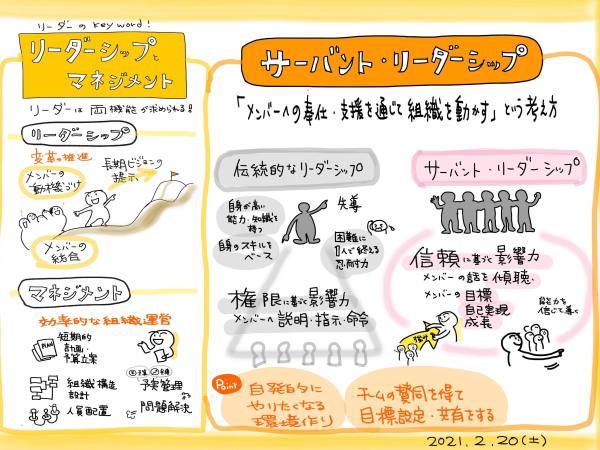 リーダーの Key word!
リーダーシップと
マネジメント
リーダーは両機能が求められる!
リーダーシップ
変革の推進
メンバーの
動機づけ
長期ビジョンの
提示
メンバーの
統合
マネジメント
効率的な組織運営
PLAN
短期的
計画・
予算立案
組織構造
設計
人員配置
予実管理
問題解決
サーバント・リーダーシップ
「メンバーへの奉仕・支援を通じて組織を動かす」という考え方
伝統的なリーダーシップ
自身が高い
能力・知識を
持つ
自身のスキルを
ベース
先導
困難に
1人で耐える
忍耐力
権限に基づく影響力
メンバーへ説明・指示・命令
サーバント・リーダーシップ
信頼に基づく影響力
メンバーの話を傾聴、
メンバーの目標
自己実現
成長
能力を
信じて導く
Point
自発的に
やりたくなる
環境作り
チームの賛同を得て
目標設定・共有をする
2021.2.20(土)